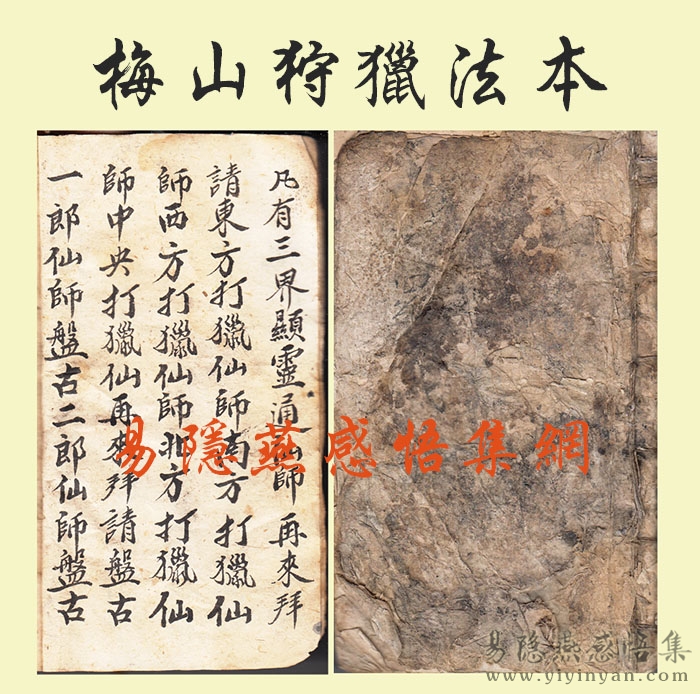 梅山狩獵法本
凡有三界顯靈涌仙師再來拜
請東方打獵仙師南方打獵仙
師西方打獵仙師北方打獵仙
師中央打獵仙再來拜請盤古
一郎仙師盤古二郎仙師盤古
易隱燕感悟集網
易隐燕感悟集
www.yiyinyan.com